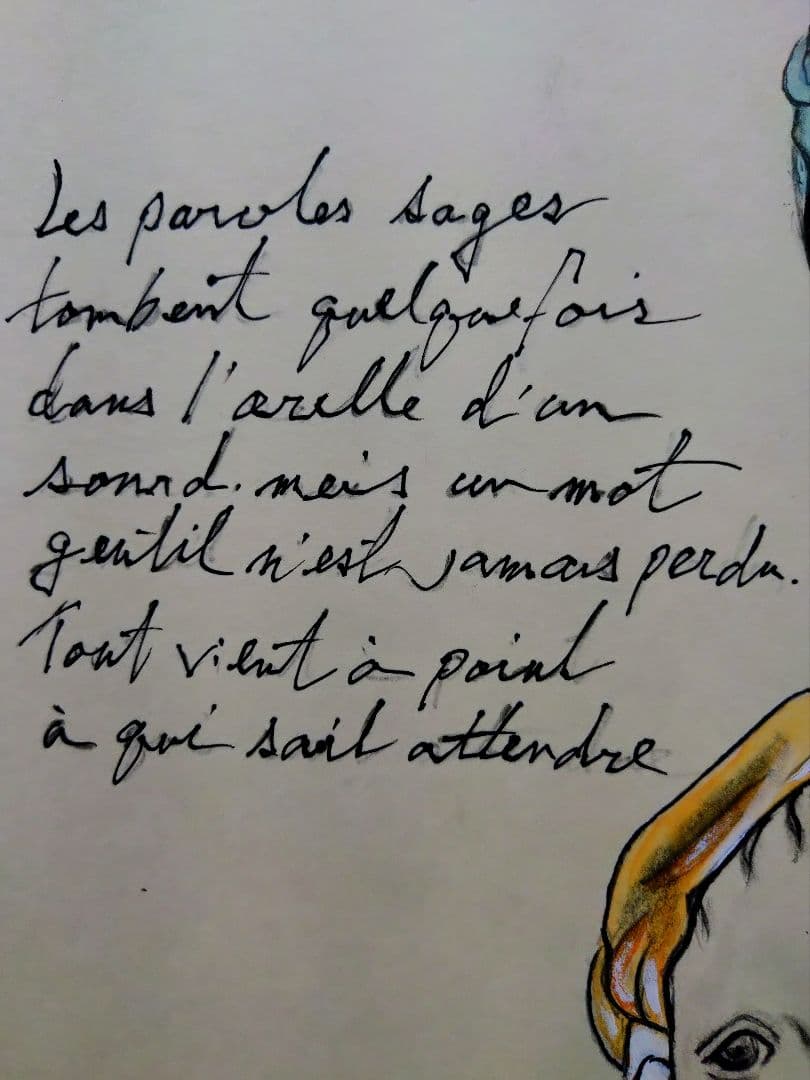 Les paroles sages
tombent quelquefois
dans l'orelle d'un
sourd. mais un mot
gentil n'est jamais perdu.
Tout vient à point
à qui sait attendre